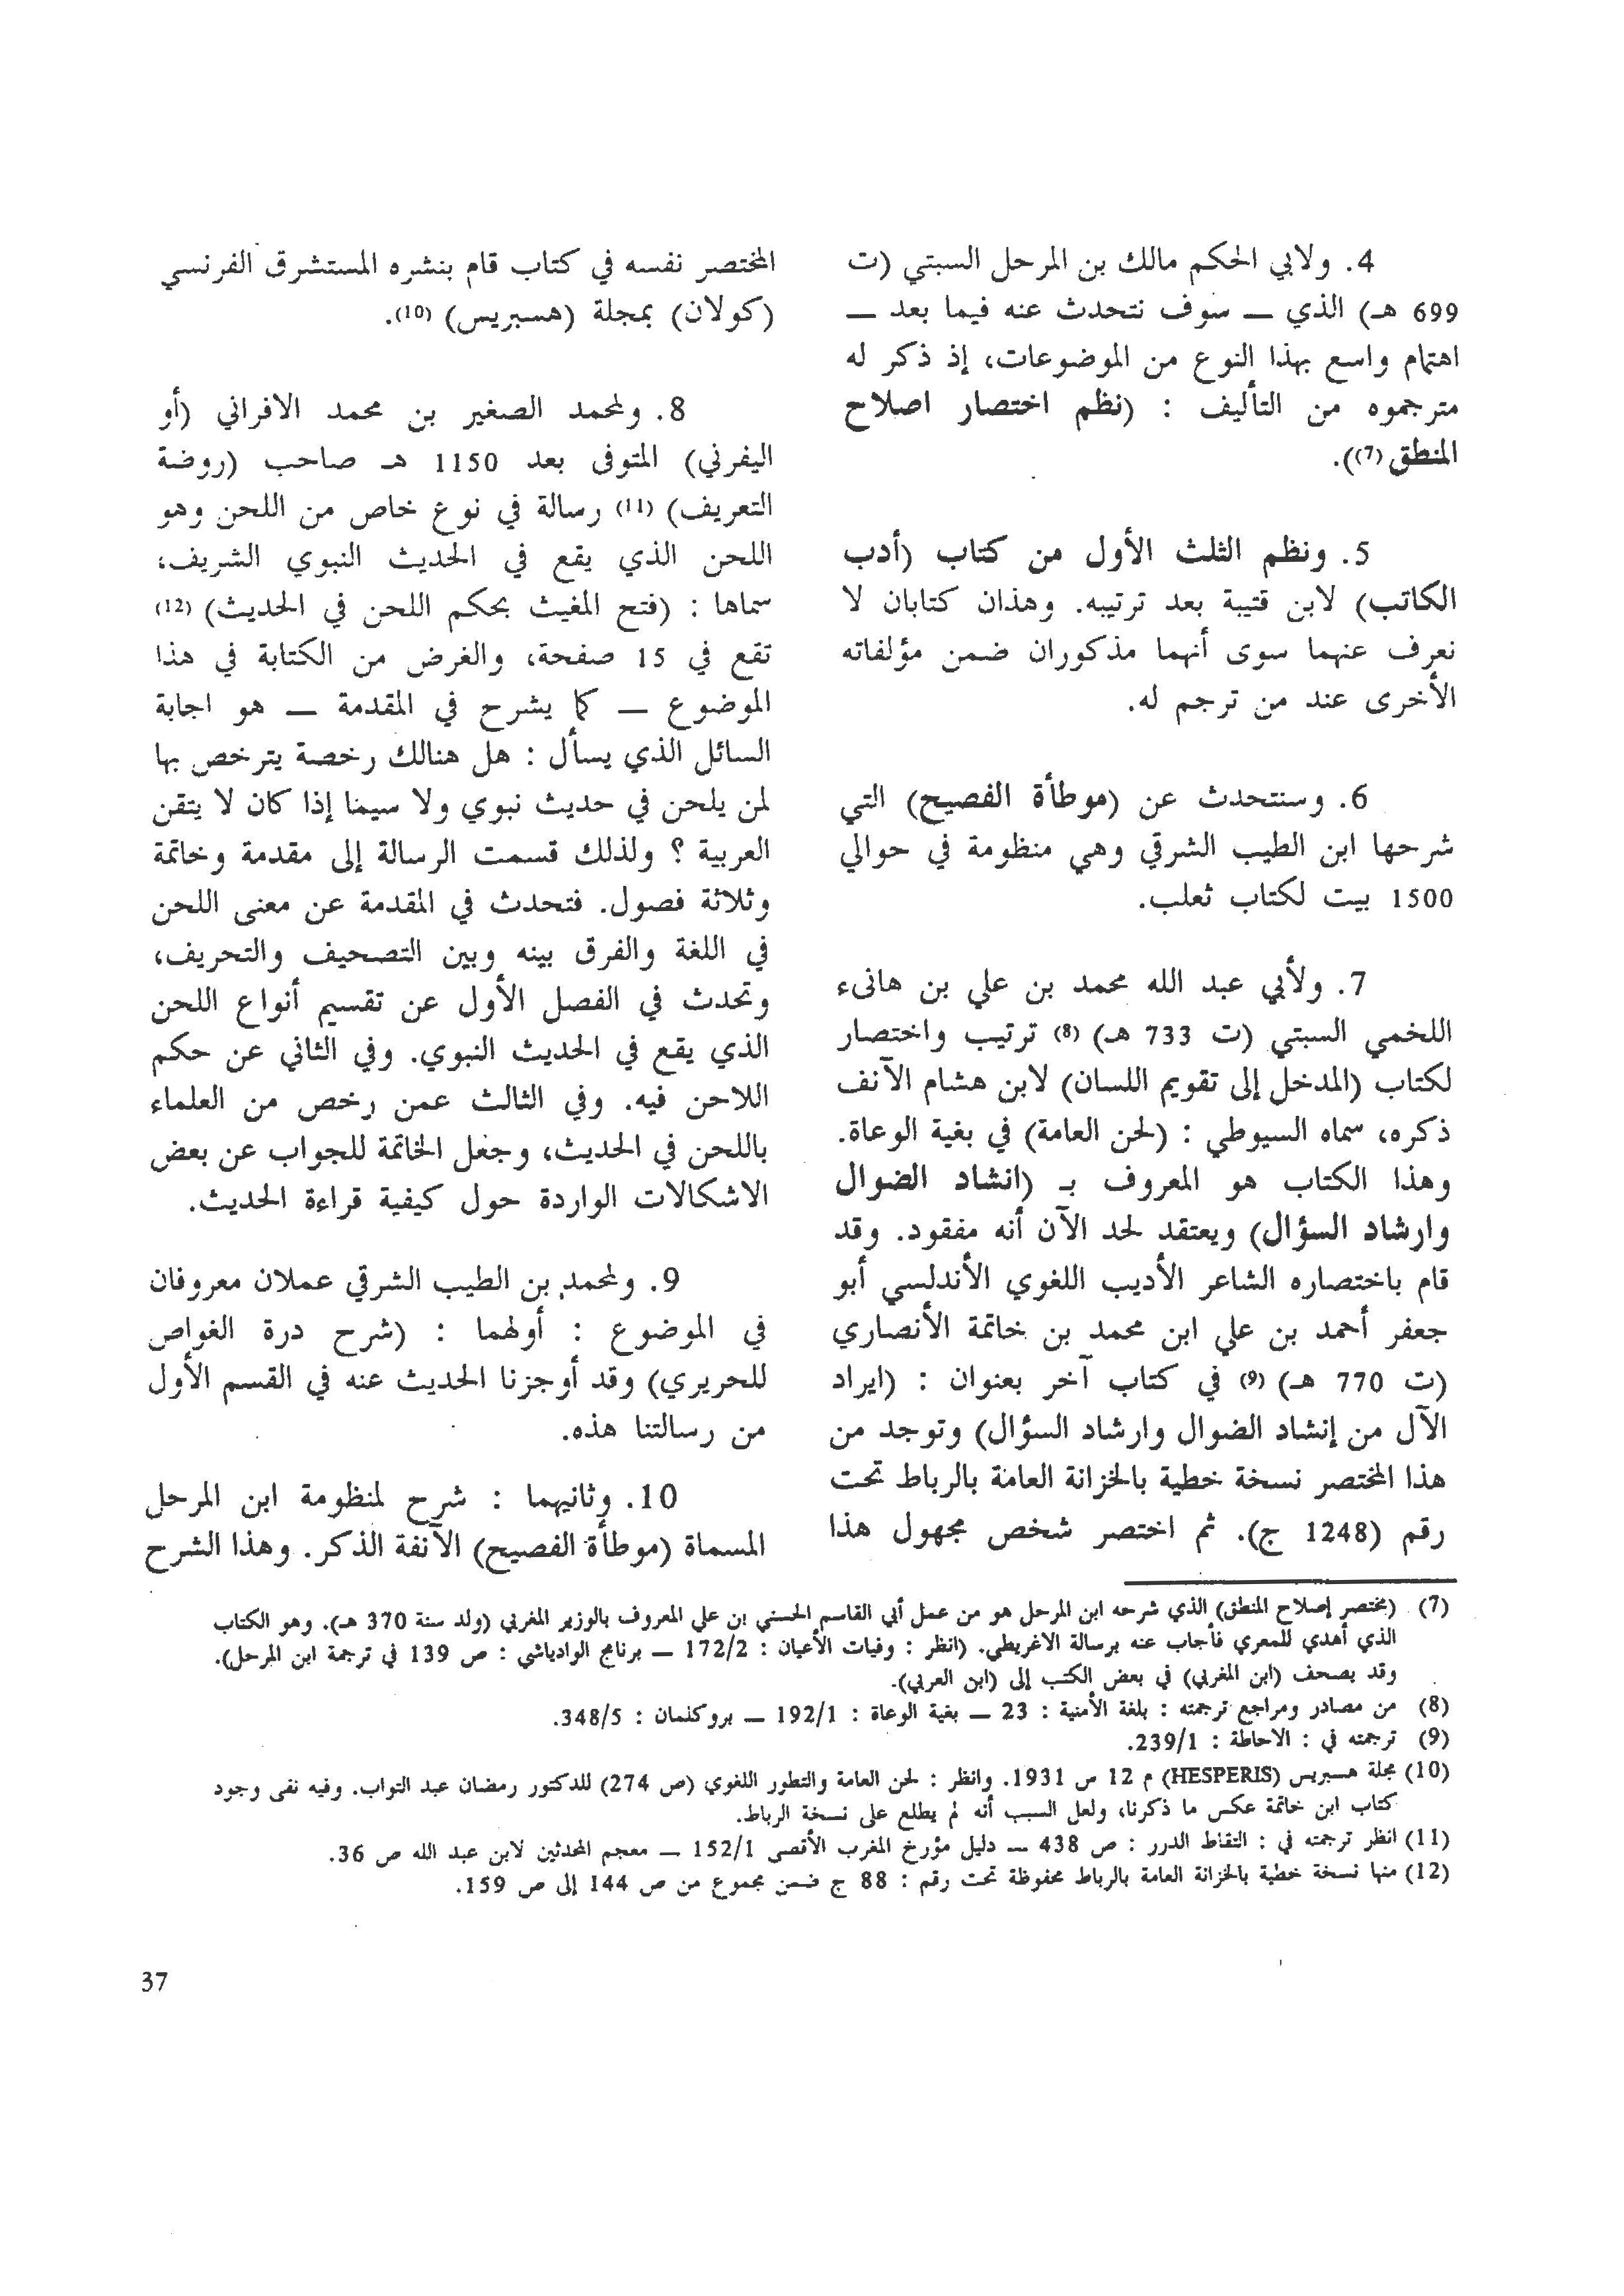 4. ولابي الحكم مالك بن المرحل السبتي (ت
699 هـ) الذي — سوف نتحدث عنه فيما بعد —
اهتمام واسع بهذا النوع من الموضوعات، إذ ذكر له
مترجموه من التأليف : (نظم اختصار اصلاح
المنطق (7)).
5. ونظم الثلث الأول من كتاب (أدب
الكاتب) لابن قتيبة بعد ترتيبه. وهذان كتابان لا
نعرف عنهما سوى أنهما مذكوران ضمن مؤلفاته
الأخرى عند من ترجم له.
6. وسنتحدث عن (موطأة الفصيح) التي
شرحها ابن الطيب الشرقي وهي منظومة في حوالي
1500 بيت لكتاب ثعلب.
7. ولأبي عبد الله محمد بن علي بن هانىء
اللخمي السبتي (ت 733 هـ) (8) ترتيب واختصار
لكتاب (المدخل إلى تقويم اللسان) لابن هشام الآنف
ذكره، سماه السيوطي : (لحن العامة) في بغية الوعاة.
وهذا الكتاب هو المعروف بـ (انشاد الضوال
وارشاد السؤال) ويعتقد لحد الآن أنه مفقود. وقد
قام باختصاره الشاعر الأديب اللغوي الأندلسي أبو
جعفر أحمد بن علي ابن محمد بن خاتمة الأنصاري
(ت 770 هـ) (9) في كتاب آخر بعنوان : (ايراد
الآل من إنشاد الضوال وارشاد السؤال) وتوجد من
هذا المختصر نسخة خطية بالخزانة العامة بالرباط تحت
رقم (1248 ج). ثم اختصر شخص مجهول هذا
المختصر نفسه في كتاب قام بنشره المستشرق الفرنسي
(كولان) بمجلة (هسبريس) (10).
8. ولمحمد الصغير بن محمد الافراني (أو
اليفرني) المتوفى بعد 1150 هـ صاحب (روضة
التعريف) (11) رسالة في نوع خاص من اللحن وهو
اللحن الذي يقع في الحديث النبوي الشريف،
سماها : (فتح المغيث بحكم اللحن في الحديث) (12)
تقع في 15 صفحة، والغرض من الكتابة في هذا
الموضوع — كما يشرح في المقدمة — هو اجابة
السائل الذي يسأل : هل هنالك رخصة يترخص بها
لمن يلحن في حديث نبوي ولا سيما إذا كان لا يتقن
العربية ؟ ولذلك قسمت الرسالة إلى مقدمة وخاتمة
وثلاثة فصول. فتحدث في المقدمة عن معنى اللحن
في اللغة والفرق بينه وبين التصحيف والتحريف،
وتحدث في الفصل الأول عن تقسيم أنواع اللحن
الذي يقع في الحديث النبوي. وفي الثاني عن حكم
اللاحن فيه. وفي الثالث عمن رخص من العلماء
باللحن في الحديث، وجعل الخاتمة للجواب عن بعض
الاشكالات الواردة حول كيفية قراءة الحديث.
9. ولمحمد بن الطيب الشرقي عملان معروفان
في الموضوع : أولهما : (شرح درة الغواص
للحريري) وقد أوجزنا الحديث عنه في القسم الأول
من رسالتنا هذه.
10. وثانيهما : شرح لمنظومة ابن المرحل
المسماة (موطأة الفصيح) الآنفة الذكر. وهذا الشرح
(7) (مختصر إصلاح المنطق) الذي شرحه ابن المرحل هو من عمل أبي القاسم الحسني بن علي المعروف بالوزير المغربي (ولد سنة 370 هـ). وهو الكتاب
الذي أهدي للمعري فأجاب عنه برسالة الاغريطي. (انظر : وفيات الأعيان : 172/2 — برنامج الوادياشي : ص 139 في ترجمة ابن المرحل).
وقد يصحف (ابن المغربي) في بعض الكتب إلى (ابن العربي).
(8) من مصادر ومراجع ترجمته : بلغة الأمنية : 23 — بغية الوعاة : 192/1 — بروكلمان : 348/5.
(9) ترجمته في : الاحاطة : 239/1.
(10) مجلة هسبريس (HESPERIS) م 12 س 1931. وانظر : لحن العامة والتطور اللغوي (ص 274) للدكتور رمضان عبد التواب. وفيه نفى وجود
كتاب ابن خاتمة عكس ما ذكرنا، ولعل السبب أنه لم يطلع على نسخة الرباط.
(11) انظر ترجمته في : التقاط الدرر : ص 438 — دليل مؤرخ المغرب الأقصى 152/1 — معجم المحدثين لابن عبد الله ص 36.
(12) منها نسخة خطية بالخزانة العامة بالرباط محفوظة تحت رقم : 88 ج ضمن مجموع من ص 144 إلى ص 159.
37